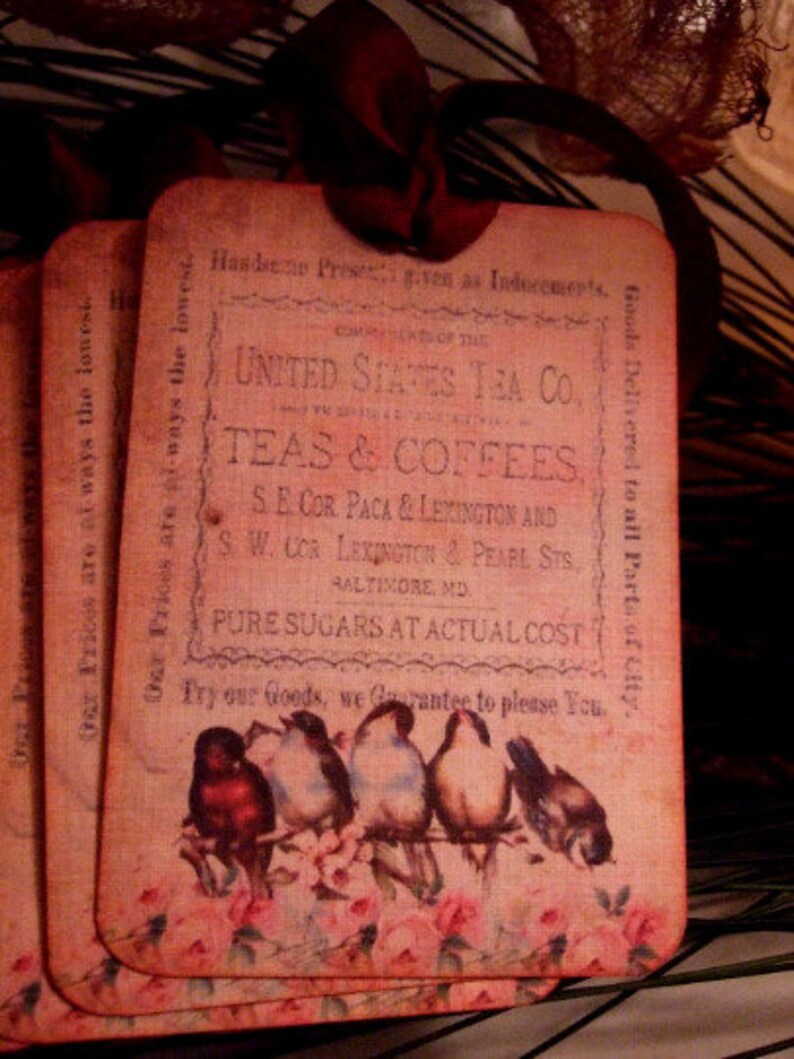 Handsome Presents given as Inducements.
COMPLIMENTS OF THE
UNITED STATES TEA CO.,
TEAS & COFFEES,
S. E. COR. PACA & LEXINGTON AND
S. W. COR. LEXINGTON & PEARL STS.,
BALTIMORE, MD.
PURE SUGARS AT ACTUAL COST
Try our Goods, we Guarantee to please You.
Our Prices are al-ways the lowest.
Goods Delivered to all Parts of City.
Our Prices are al-ways the lowest.
Our Prices are al-ways the